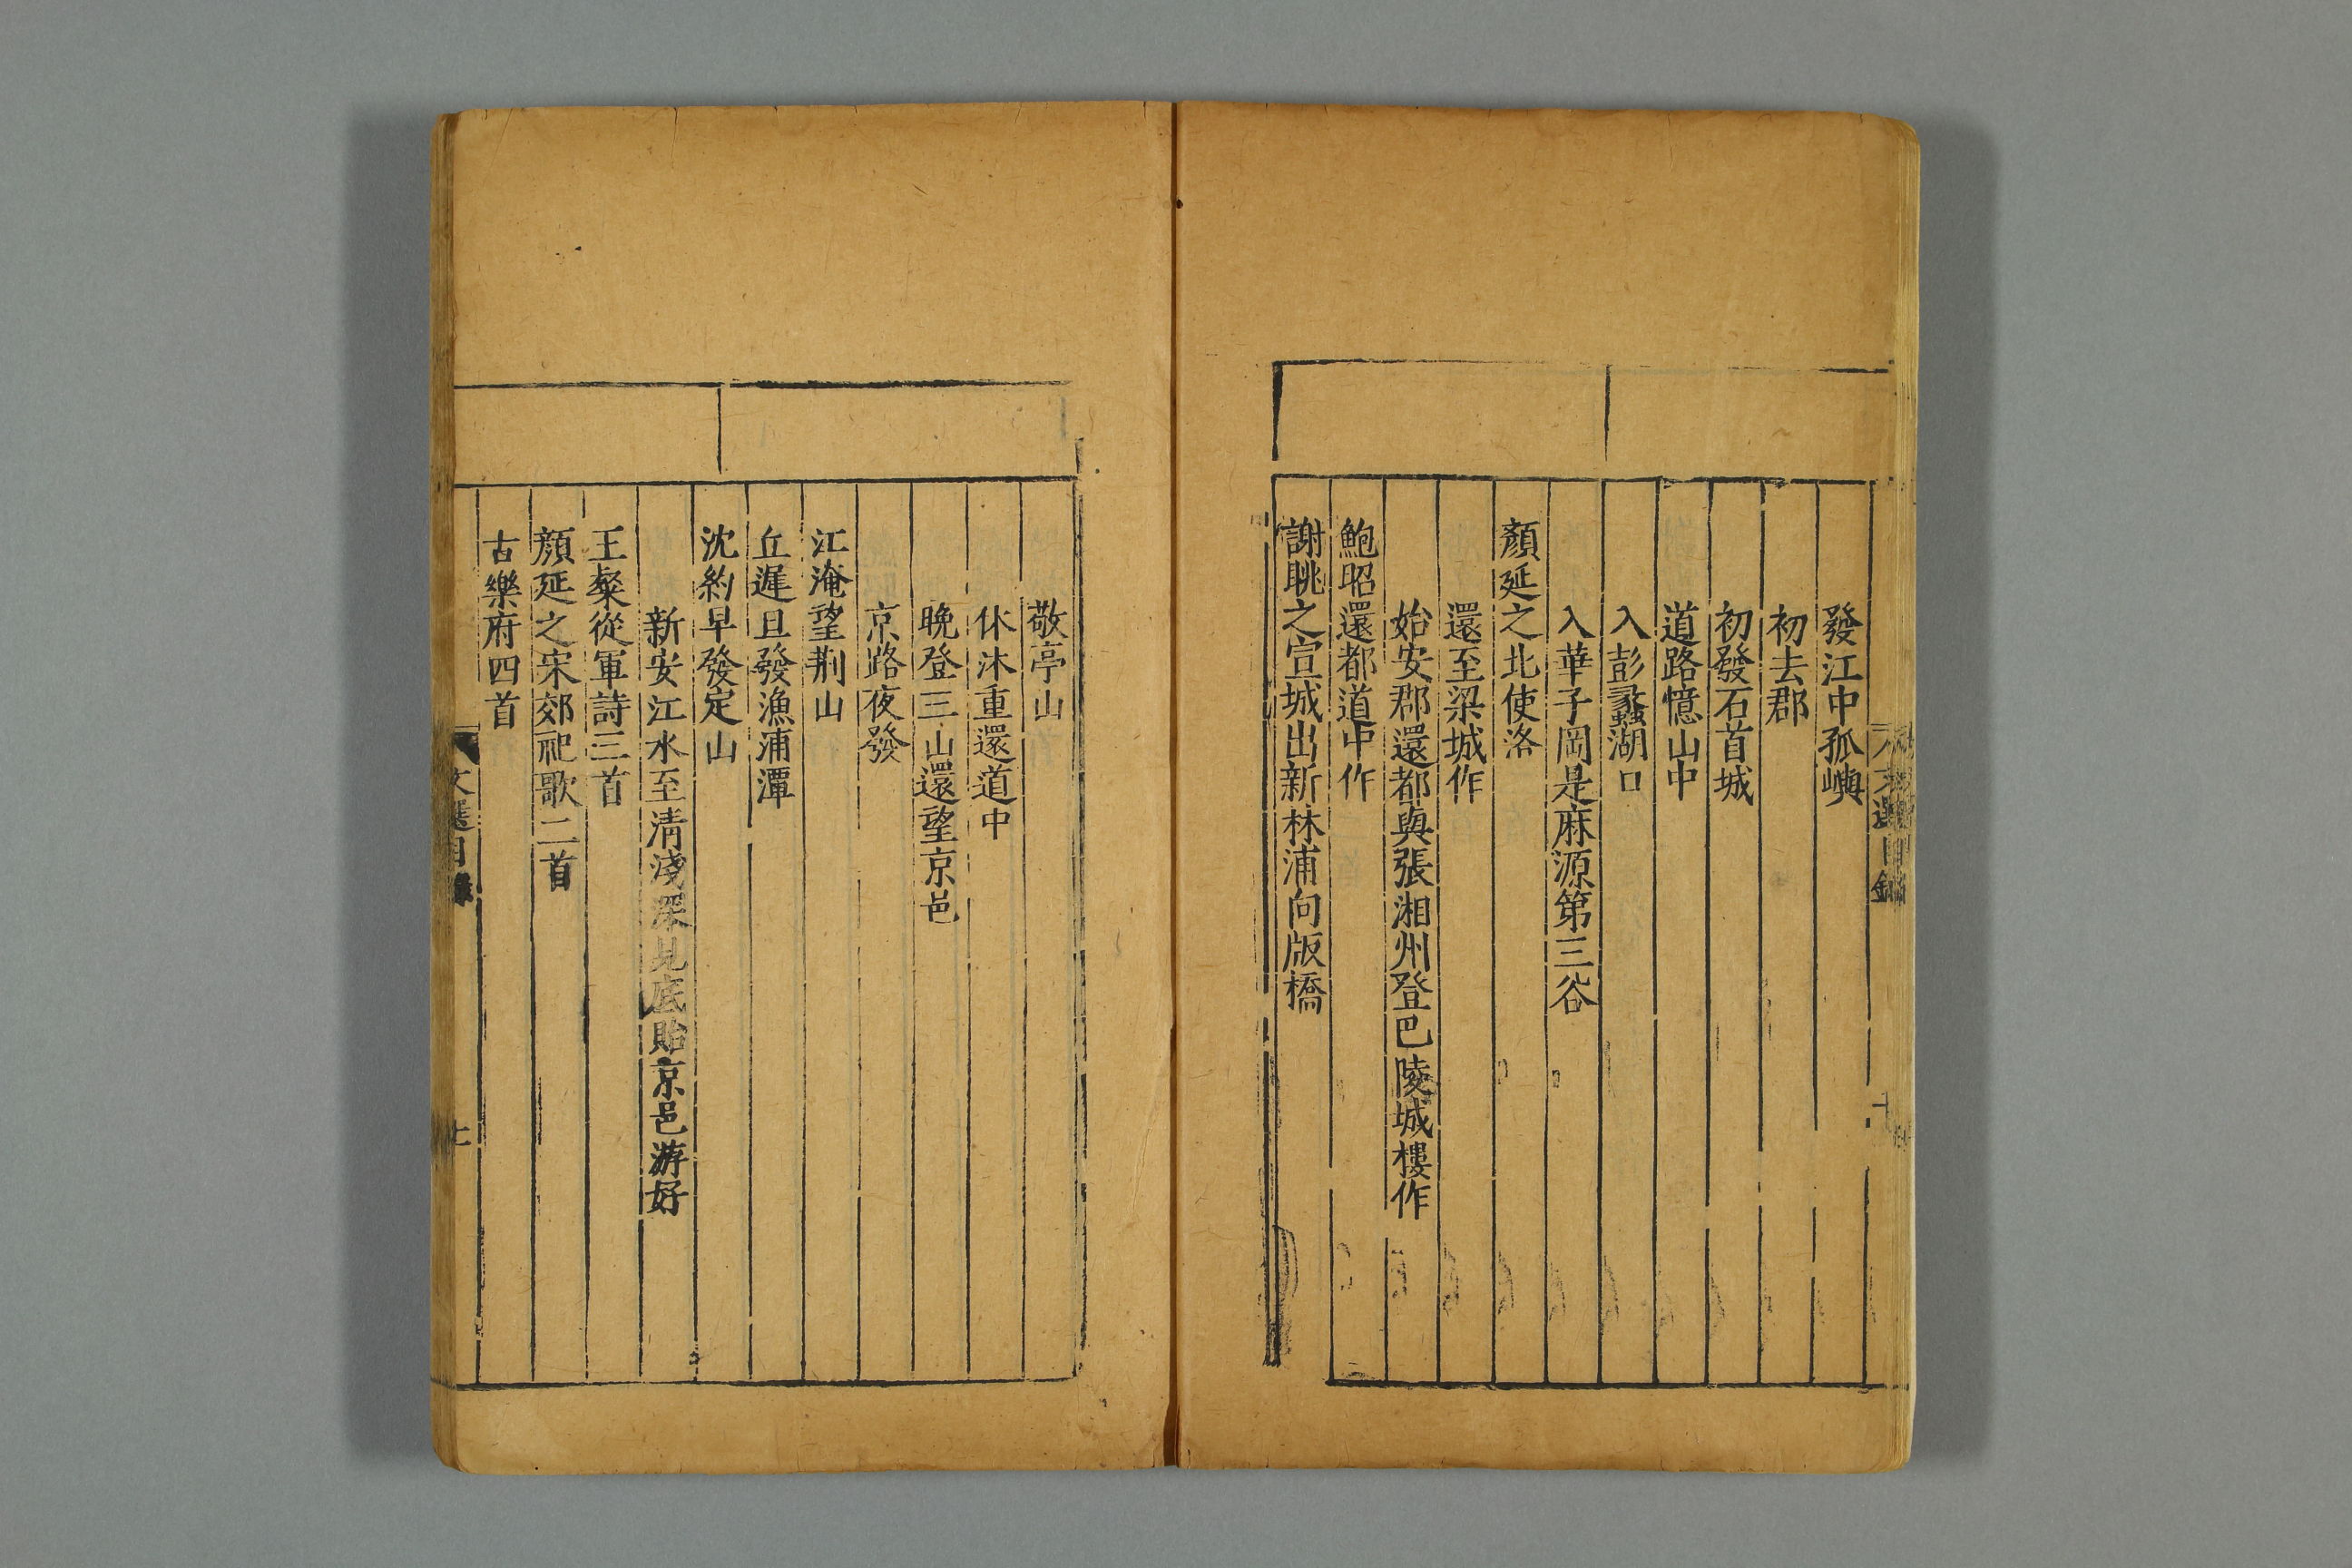 發江中孤嶼
初去郡
初發石首城
道路憶山中
入彭蠡湖口
入華子岡是麻源第三谷
顏延之北使洛
還至梁城作
始安郡還都與張湘州登巴陵城樓作
鮑昭還都道中作
謝眺之宣城出新林浦向版橋
敬亭山
休沐重還道中
晚登三山還望京邑
京路夜發
江淹望荆山
丘遲旦發漁浦潭
沈約早發定山
新安江水至清淺深見底貽京邑游好
王粲從軍詩三首
顏延之宋郊祀歌二首
古樂府四首
文選目錄